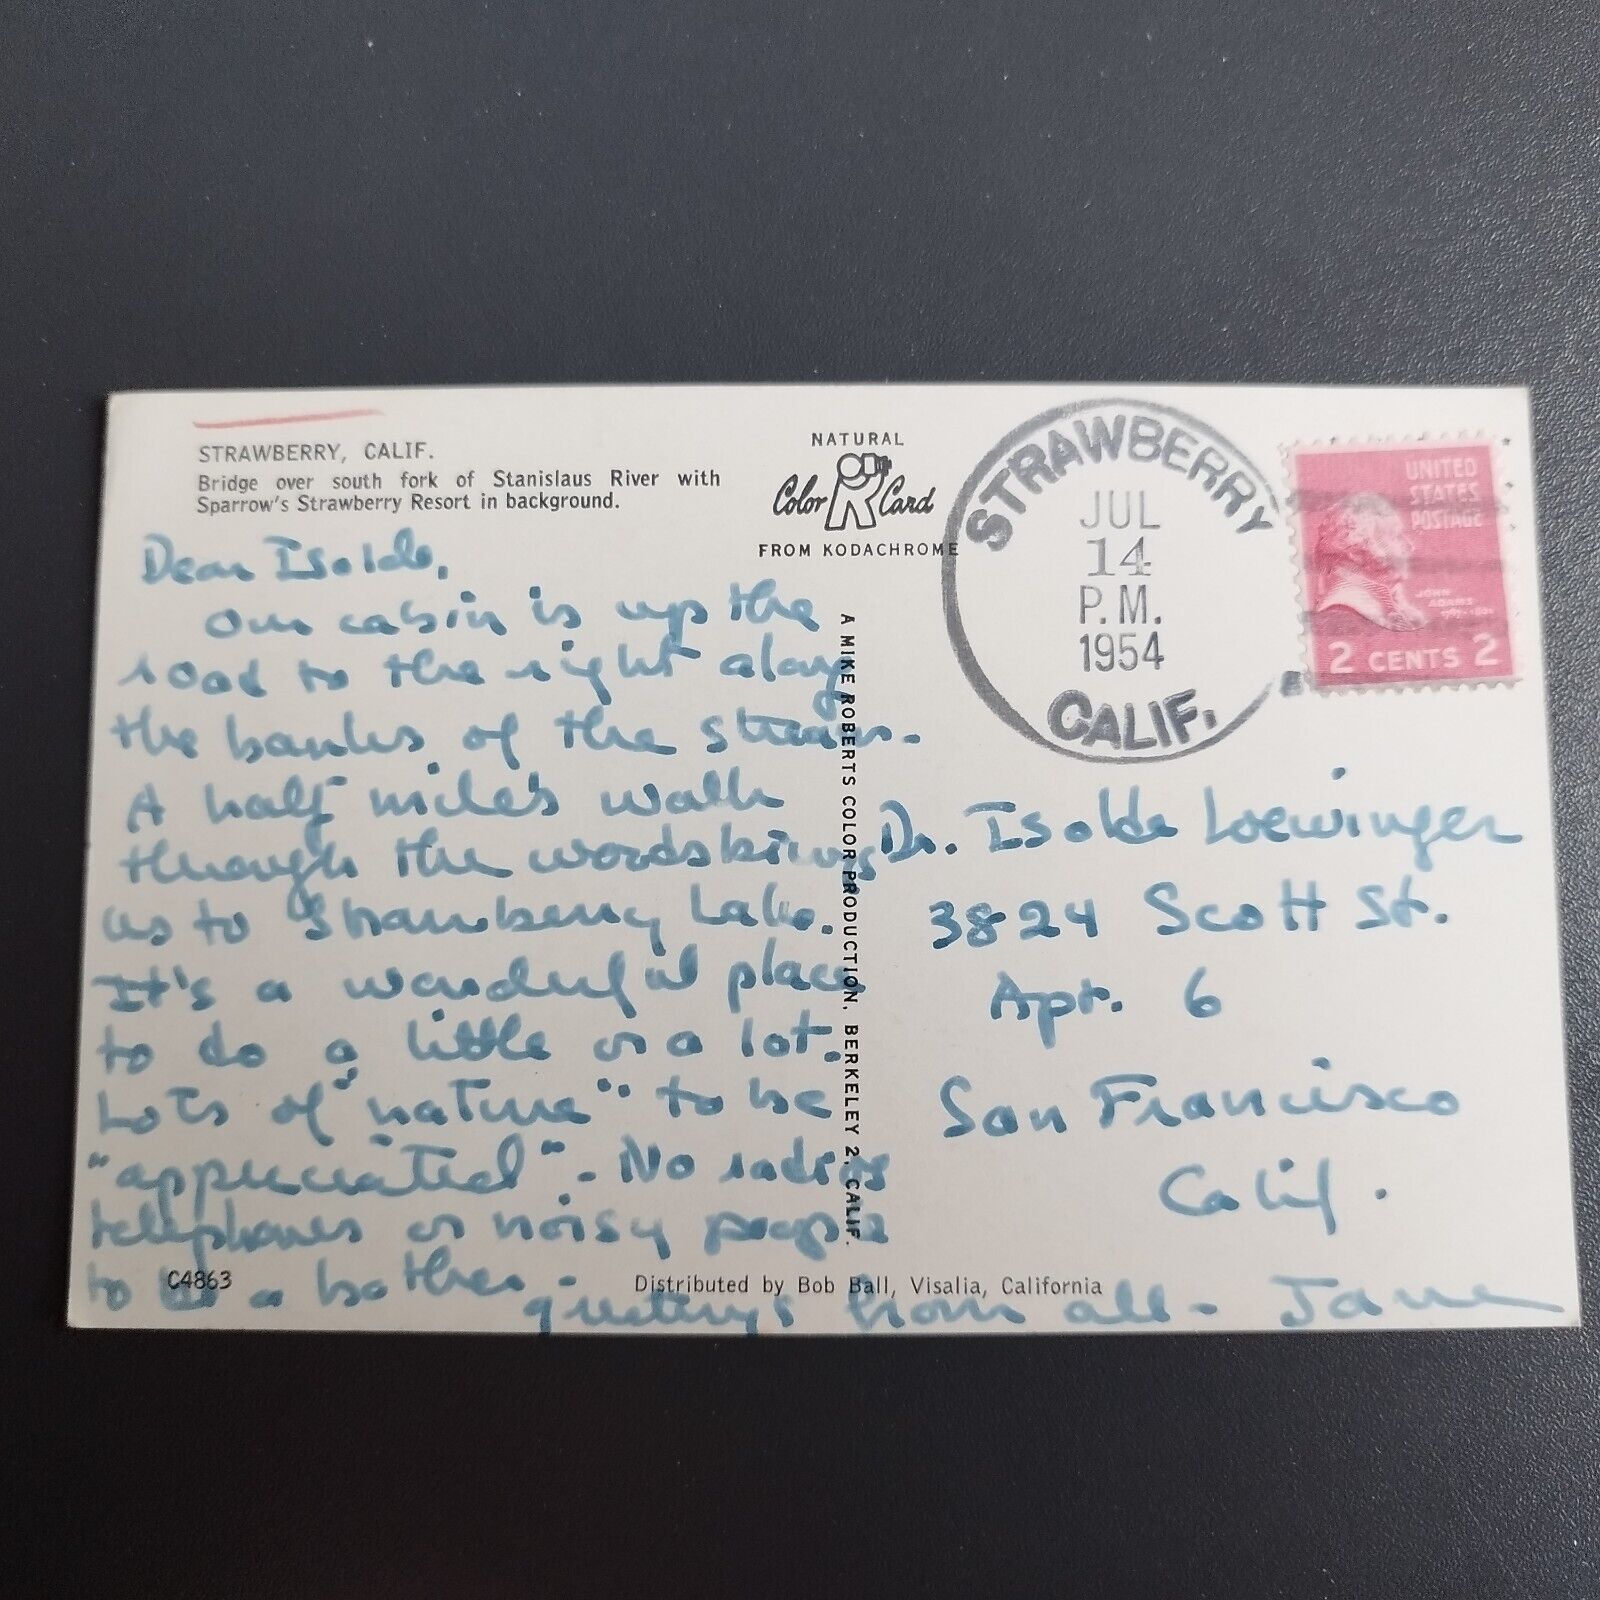 STRAWBERRY, CALIF.
Bridge over south fork of Stanislaus River with
Sparrow's Strawberry Resort in background.
NATURAL
Color Card
FROM KODACHROME
STRAWBERRY
JUL
14
P.M.
1954
CALIF.
UNITED
STATES
POSTAGE
JOHN
ADAMS
2 CENTS 2
Dear Isolde,
Our cabin is up the
road to the right along
the banks of the stream.
A half mile's walk
through the woods brings
us to Strawberry Lake.
It's a wonderful place
to do a little or a lot.
Lots of "nature" to be
"appreciated". No radios
telephones or noisy people
to be a bother.
greetings from all - Jane
A MIKE ROBERTS COLOR PRODUCTION, BERKELEY 2, CALIF.
Dr. Isolde Loewinger
3824 Scott St.
Apt. 6
San Francisco
Calif.
C4863
Distributed by Bob Ball, Visalia, California